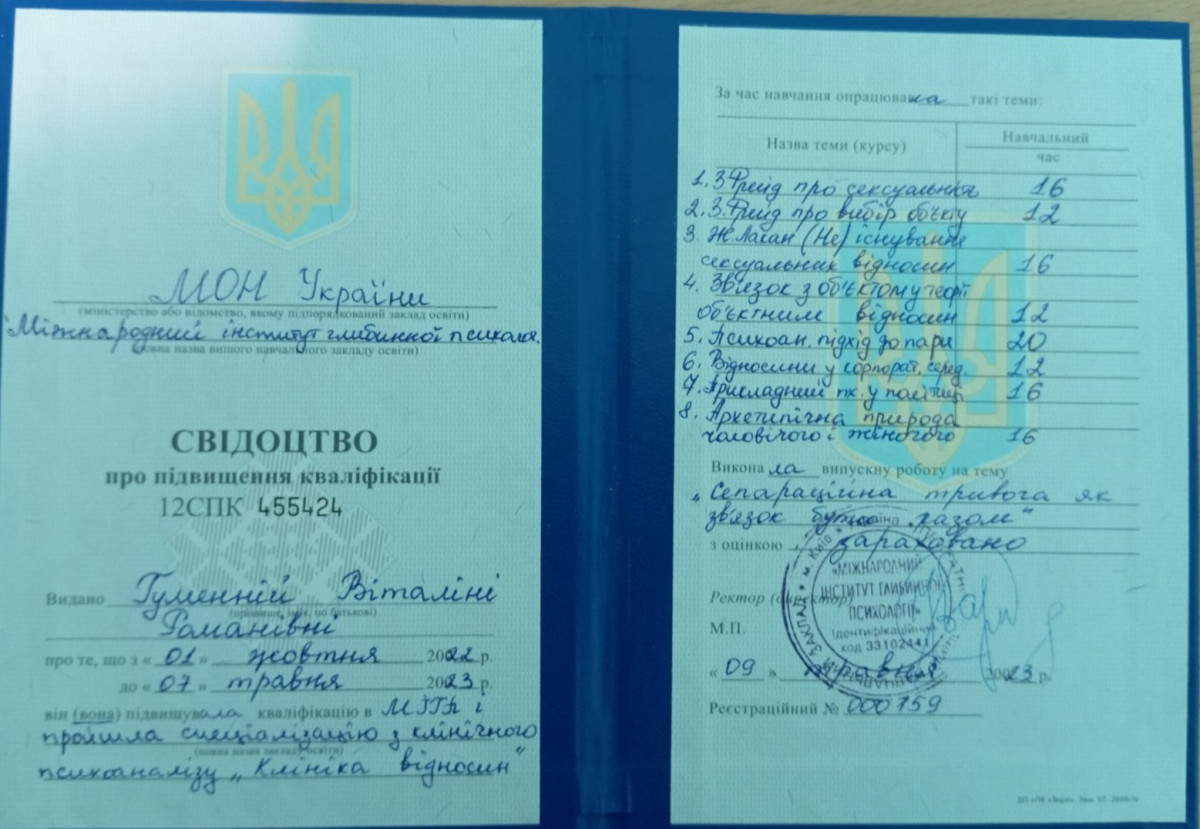 МОН України
(міністерство або відомство, якому підпорядкований заклад освіти)
"Міжнародний інститут глибинної психол.
(повна назва вищого навчального закладу освіти)
СВІДОЦТВО
про підвищення кваліфікації
12СПК 455424
Видано Гуменній Віталіні
(прізвище, ім'я, по батькові)
Романівні
про те, що з « 01 » жовтня 2022 р.
до « 07 » травня 2023 р.
він (вона) підвищувала кваліфікацію в МІГП і
пройшла спеціалізацію з клінічного
(повна назва закладу освіти)
психоаналізу „Клініка відносин"
За час навчання опрацювала такі теми:
Назва теми (курсу) Навчальний
час
1. З.Фрейд про сексуальність 16
2. З.Фрейд про вибір об'єкту 12
3. Ж.Лакан (Не) існування
сексуальних відносин 16
4. Зв'язок з об'єктом у теорії
об'єктних відносин 12
5. Психоан. підхід до пари 20
6. Відносини у корпорат. серед. 12
7. Прикладний пх. у політиці 16
8. Архетипічна природа
чоловічого і жіночого 16
Виконала випускну роботу на тему
„Сепараційна тривога як
зв'язок бути разом"
з оцінкою зараховано
Ректор (директор)
М.П.
«МІЖНАРОДНИЙ
ІНСТИТУТ ГЛИБИННОЇ
ПСИХОЛОГІЇ»
Ідентифікаційний
код 33102441
« 09 » травня 2023 р.
Реєстраційний № 000159